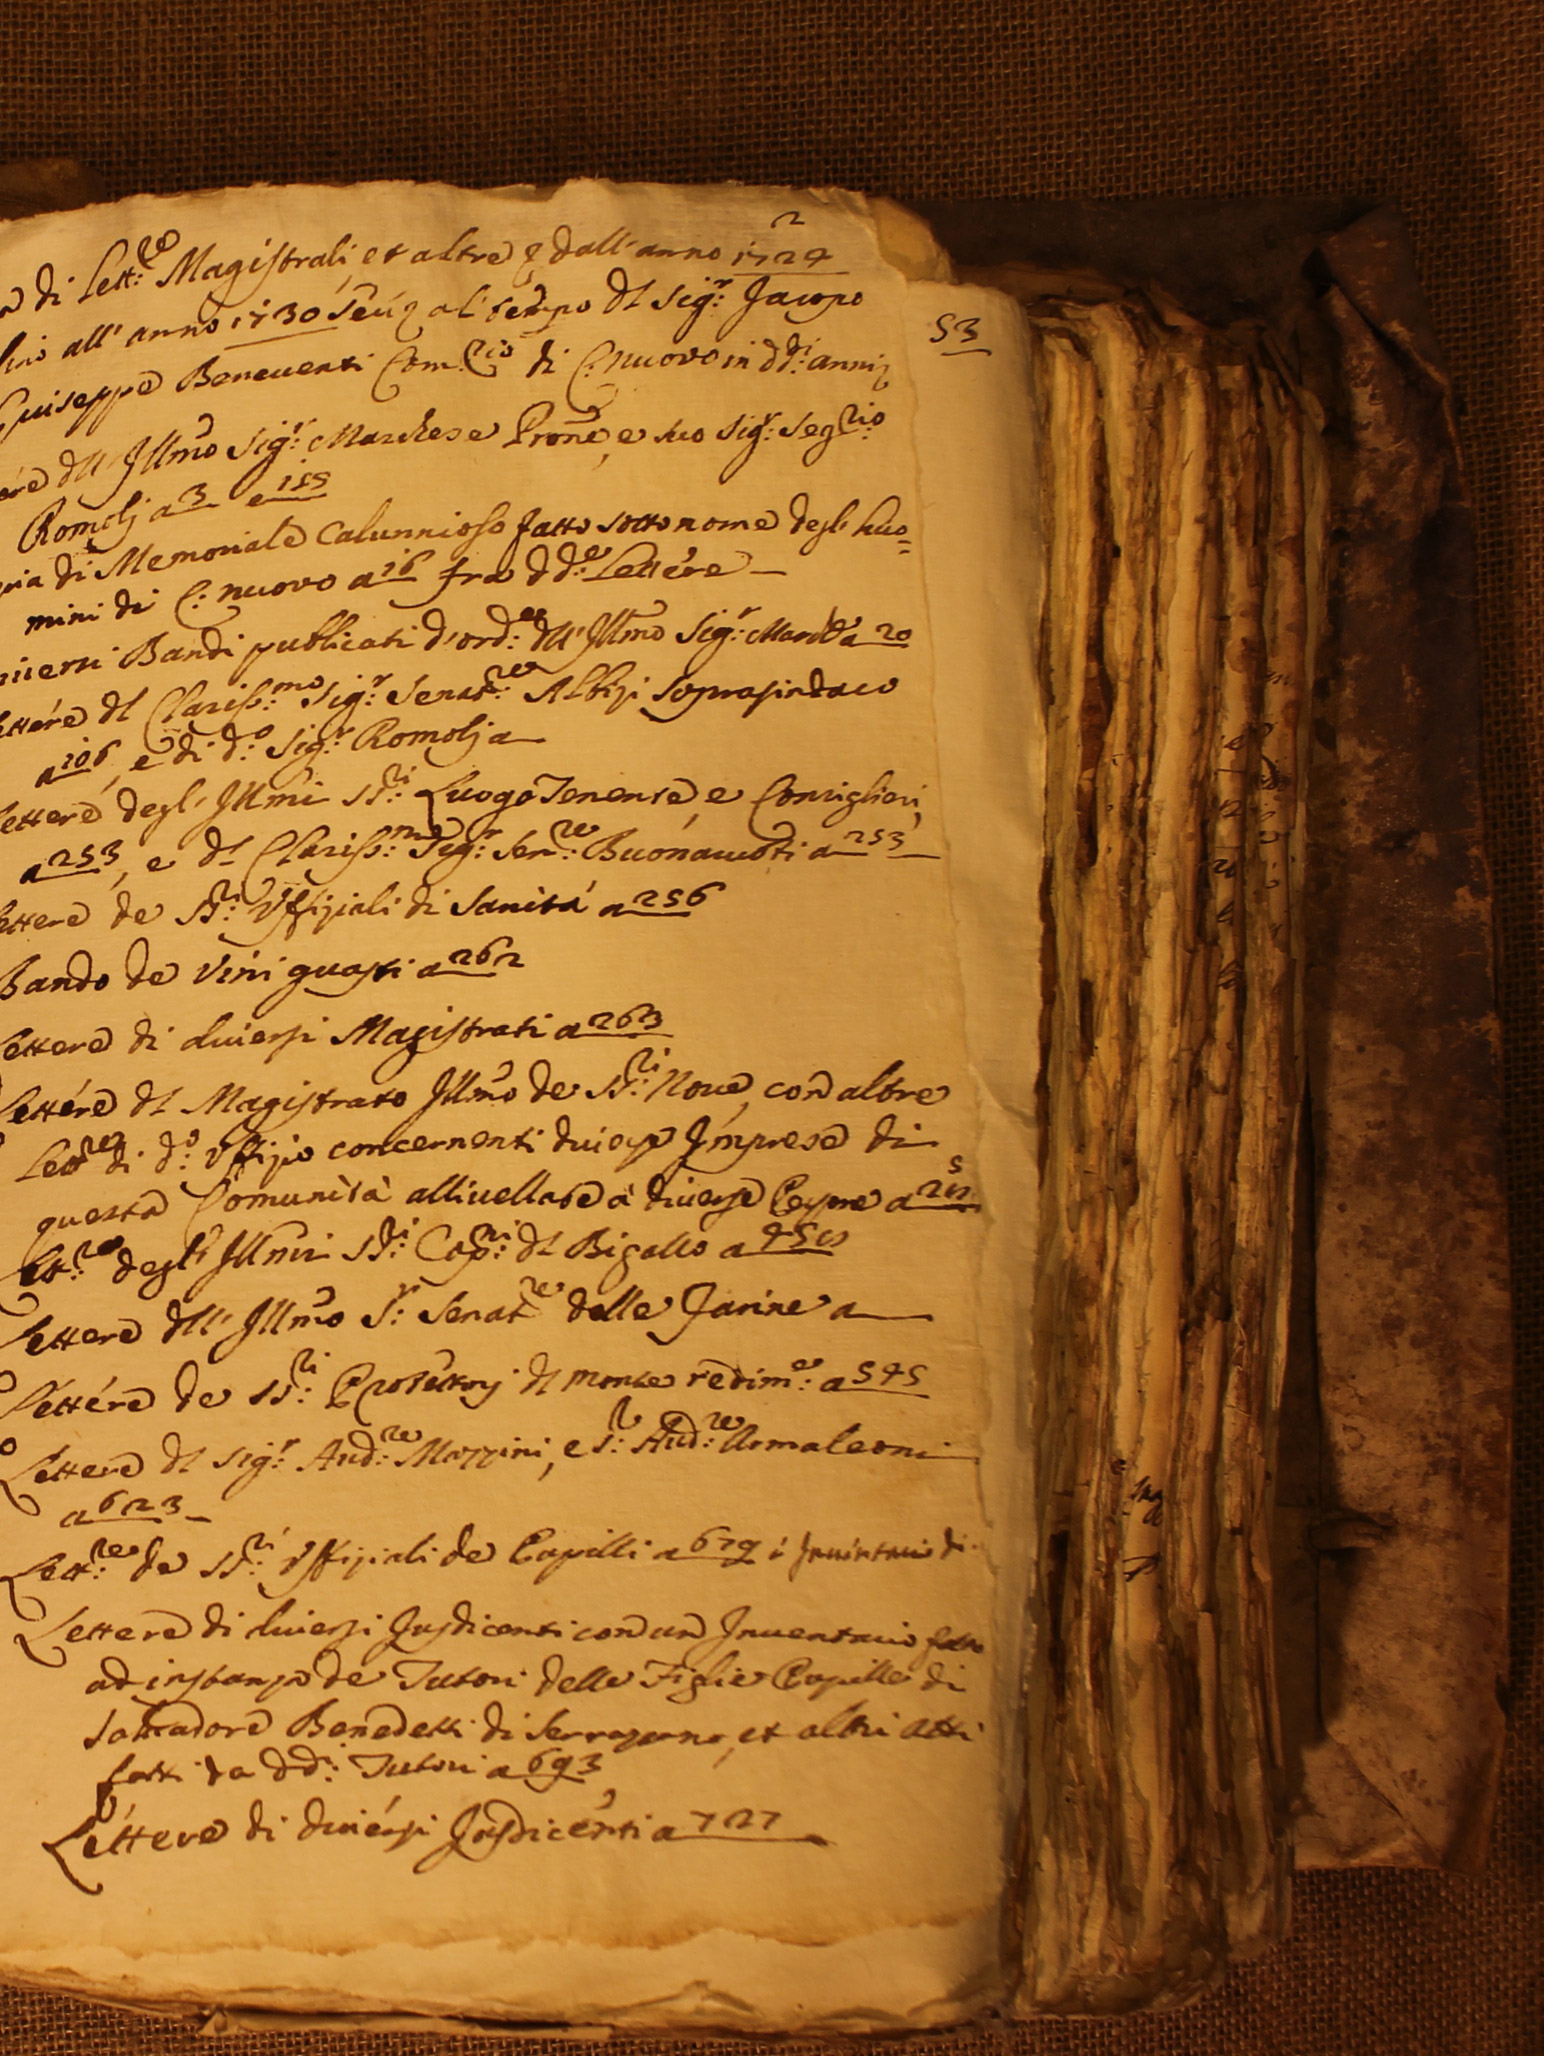 2
di Lett:re Magistrali, et altre dall'anno 1724
all'anno 1730 al tempo dl Sig:r Jacopo
53
Giuseppe Beneventi Com:rio di C: nuovo in dd:i anni
dll' Illmo Sig:r Marchese Prone, e suo Sig:r Seg:rio
Romolj a 3 e 155
di Memoriale Calunnioso fatto sotto nome degl' huo=
mini di C: nuovo a 16 fra dd:e Lettere
Bandi publicati d'ord:e dll' Illmo Sig:r March:e a 20
Lettere dl Clariss:mo Sig:r Senat:re Albizi Soprasindaco
a 106, e di d:o Sig:r Romolj a
Lettere degl' Illmi SS:ri Luogo Tenente, e Consiglieri,
a 253, e dl Clariss:mo Sig:r Sen:re Buonarroti a 253
Lettere de SS:ri Uffiziali di Sanità a 256
Bando de Vini guasti a 262
Lettere di diversi Magistrati a 263
Lettere dl Magistrato Illmo de SS:ri Nove, con altre
Lett:re di d:o Uffizio concernenti diverse Imprese di
questa Comunità allivellate a diverse Persone a
Lett:re degl' Illmi SS:ri Cap:ni dl Bigallo a
Lettere dll' Illmo S:r Senat:re delle Farine a
Lettere de SS:ri Protettori dl monte redim:e a 545
Lettere dl Sig:r Aud:re Mazzini, e S:r Aud:re Armaleoni
a 623
Lett:re de SS:ri Uffiziali de Pupilli a 679 Inventario di
Lettere di diversi Jusdicenti con un Inventario fatto
ad instanza de Tutori delle Figlie Pupille di
Salvadore Benedetti di Serrazzano, et altri atti
fatti da dd:i Tutori a 693
Lettere di diversi Jusdicenti a 727